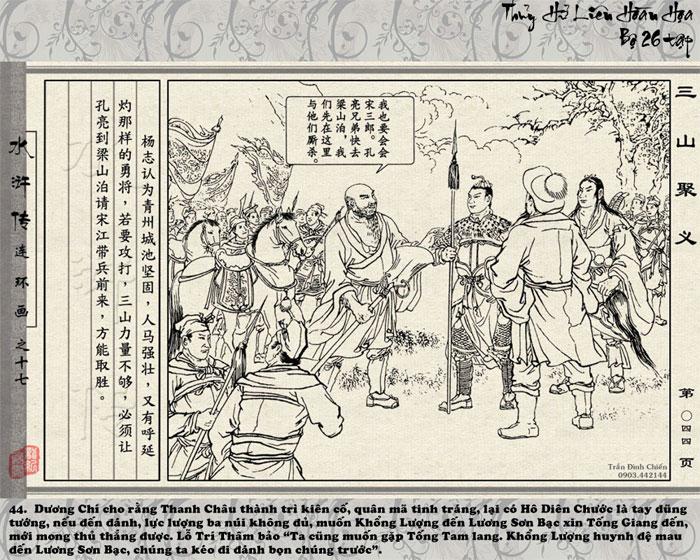 Thủy Hử Liên Hoàn Họa
Bộ 26 tập
三山聚义
我也要会会
宋三郎。孔
亮兄弟快去
梁山泊，我
们先在这里
与他们厮杀。
杨志认为青州城池坚固，人马强壮，又有呼延
灼那样的勇将，若要攻打，三山力量不够，必须让
孔亮到梁山泊请宋江带兵前来，方能取胜。
水浒传连环画之十七
第〇四四页
Trần Đình Chiến
0903.442144
44. Dương Chí cho rằng Thanh Châu thành trì kiên cố, quân mã tinh tráng, lại có Hô Diên Chước là tay dũng
tướng, nếu đến đánh, lực lượng ba núi không đủ, muốn Khổng Lượng đến Lương Sơn Bạc xin Tống Giang đến,
mới mong thủ thắng được. Lỗ Trí Thâm bảo “Ta cũng muốn gặp Tống Tam lang. Khổng Lượng huynh đệ mau
đến Lương Sơn Bạc, chúng ta kéo đi đánh bọn chúng trước”.